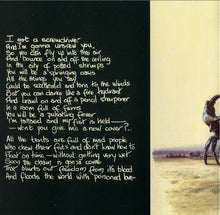 I got a screwdriver
And I'm gonna unscrew you,
So you can fly up into the air
And bounce on and off the ceiling
In the city of potted shrimps
You will be a springing oasis
All the things you say
Could be scribbled and torn to the winds
But you can dance like a fire hydrant
And crawl on and off a pencil sharpener
In a room full of leaves
You will be a pulsating fever
I'm tattooed and my fist is held
won't you give me a new cover!..
All the tombs are full of mad people
Who chew their fists and don't know how to
float on time without getting very wet
the chain is grass coated
That blurts out freedom from its blood
And floods the world with poisoned